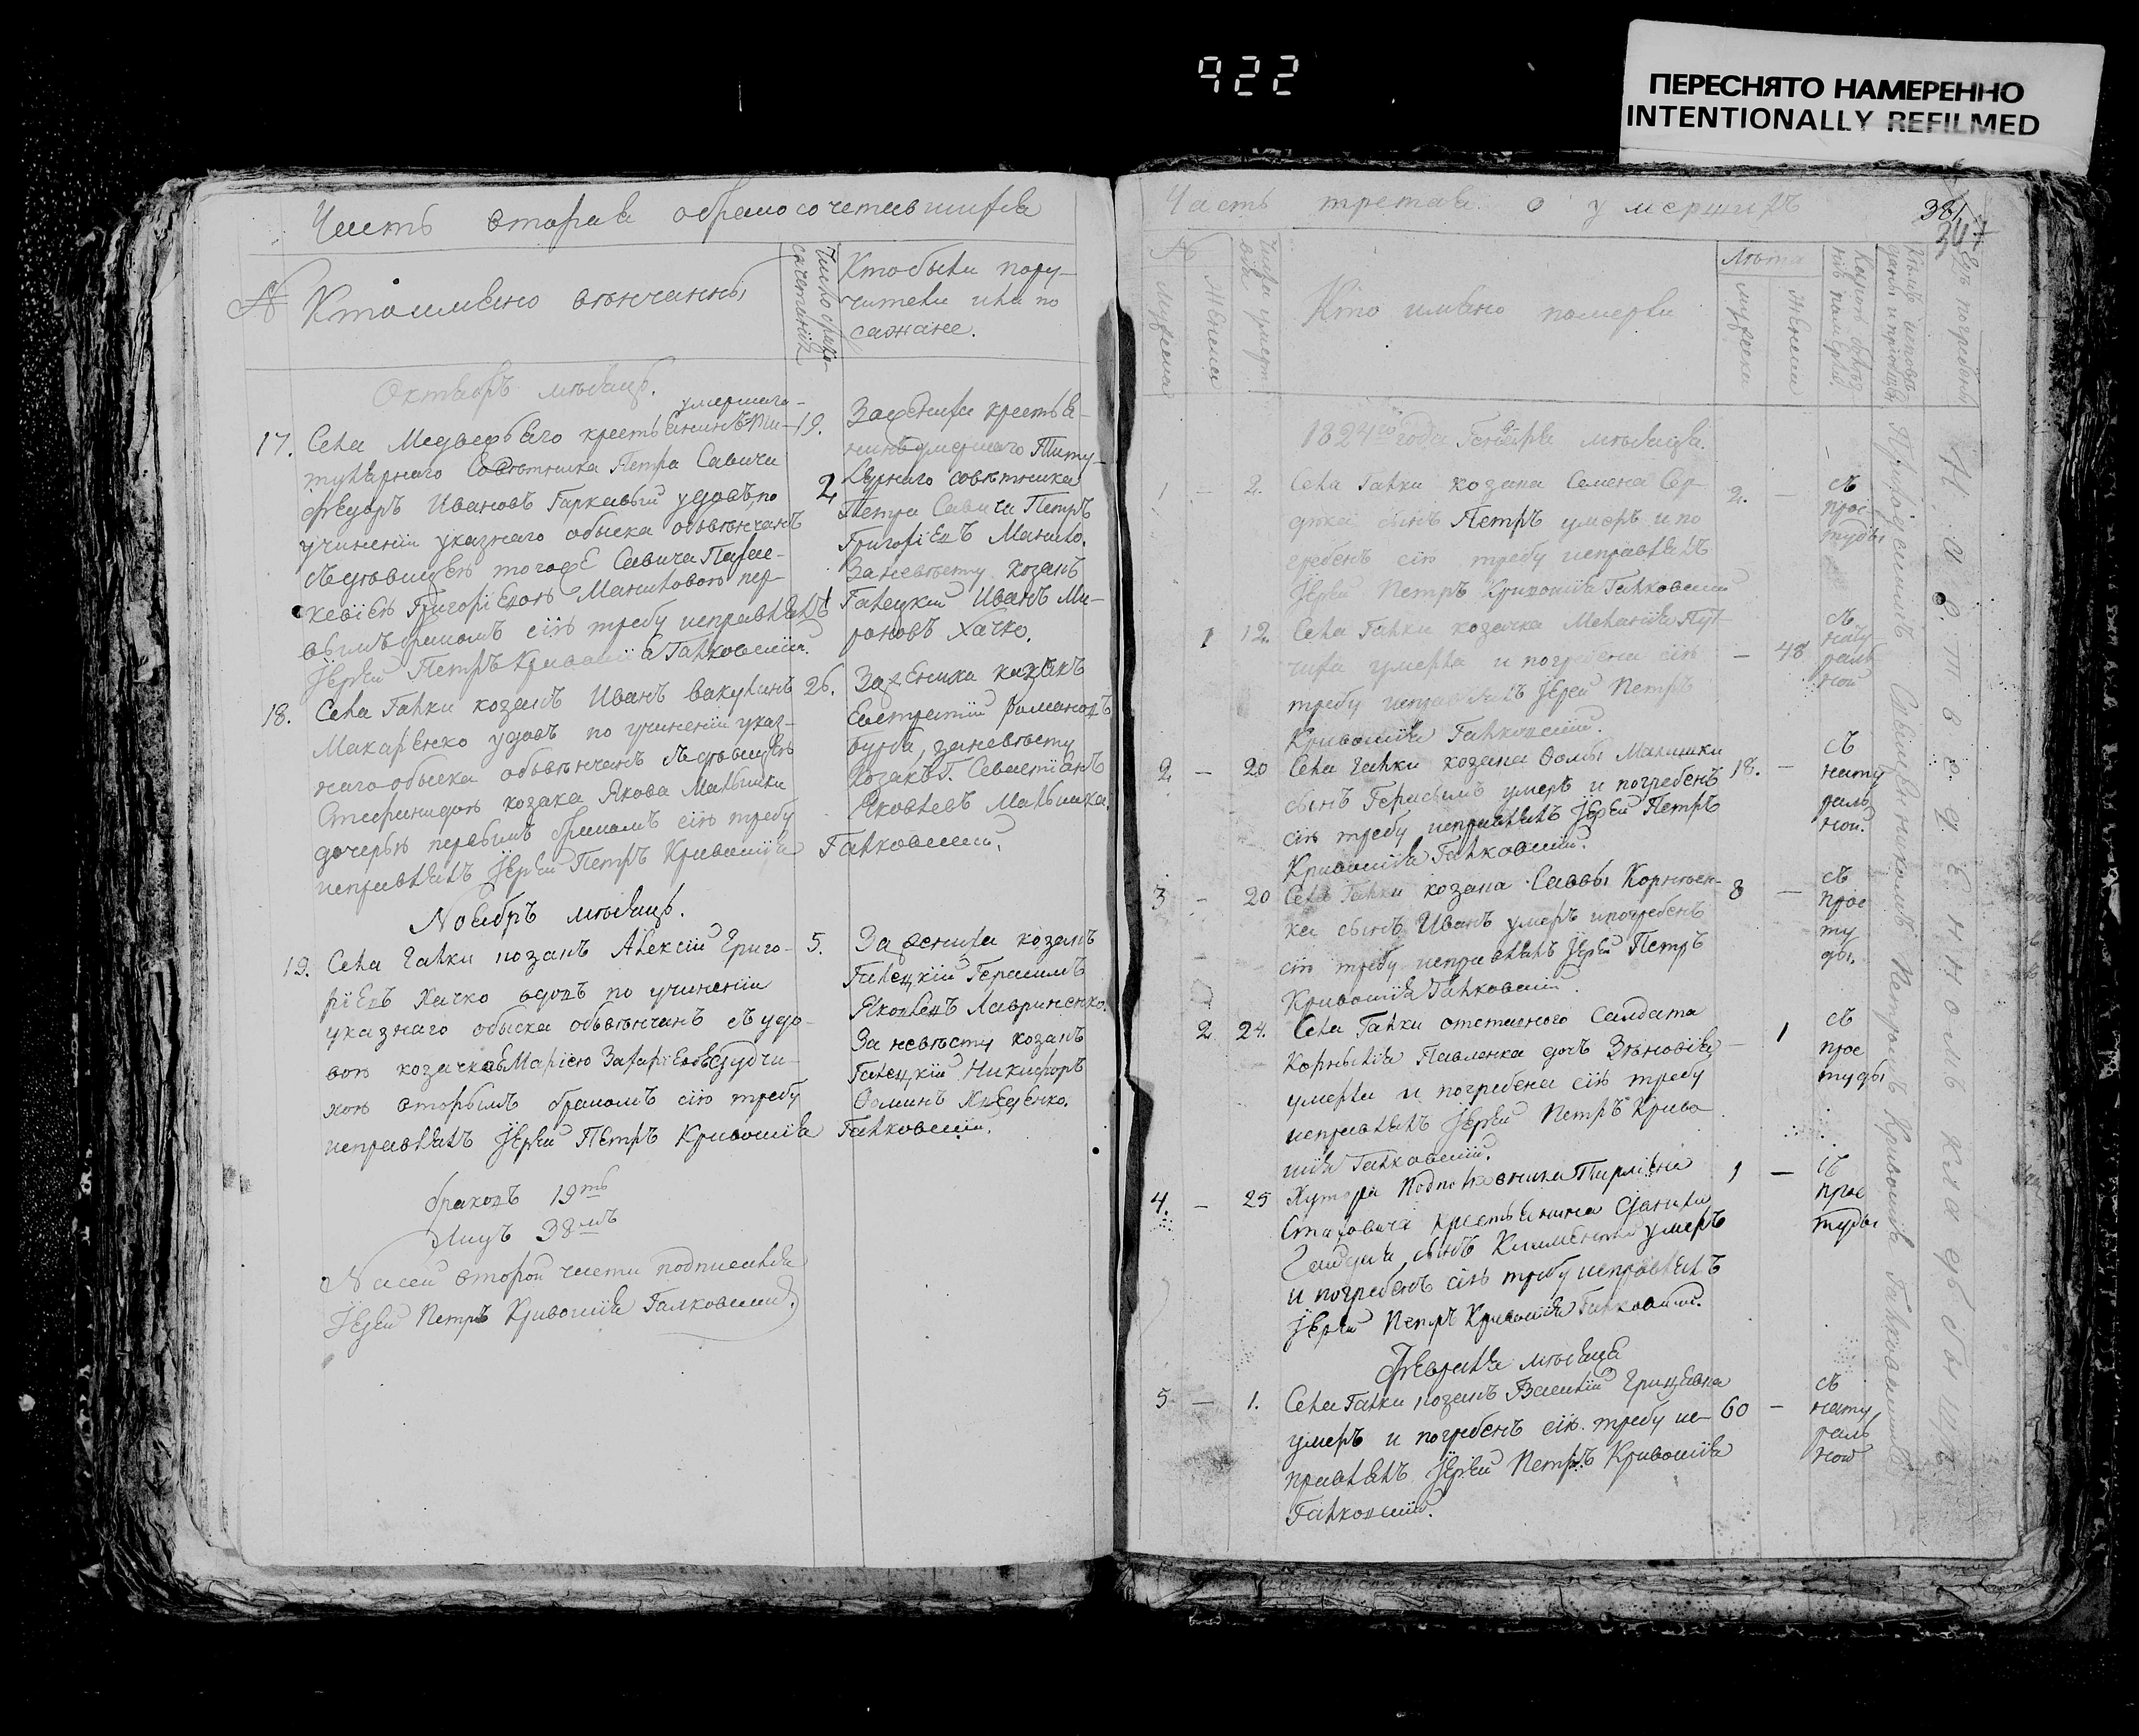 922
ПЕРЕСНЯТО НАМЕРЕННО
INTENTIONALLY REFILMED
Часть вторая обракосочетавшихся
№
Кто имѣно вѣнчанны
Число брако-
сочетаній
Кто были пору-
чители или по
сажане.
Октябрь мѣсяцъ.
умершаго
17. Села Медвежаго крестьянинъ Ти- 19.
тулярнаго Совѣтника Петра Савича
Феодоръ Ивановъ Гаркавый удовъ, по 2
учиненіи указнаго обыска обвѣнчанъ
съ дѣвицею того же Савича Параске-
кевіею Григоріевою Манжковою пер- 1
вымъ бракомъ сію требу исправлялъ
Іерей Петръ Кривошія Галковскій.
За жениха крестья-
нинъ умершаго Титу-
лярнаго совѣтника
Петра Савича Петръ
Григоріевъ Манжко.
За невѣсту козакъ
Галецкій Иванъ Ми-
роновъ Хачко.
18. Села Галки козакъ Иванъ Вакулинъ 26.
Макаренко удовъ по учиненіи указ-
наго обыска обвѣнчанъ съ дѣвицею
козака Якова Малышки
дочерью первымъ бракомъ сію требу
исправлялъ Іерей Петръ Кривошія Галковскій.
За жениха казакъ
Евстратій Романовъ
за невѣсту
козакъ Г. Севастіанъ
Яковлевъ Малышка.
Ноябрь мѣсяцъ.
19. Села Галки козакъ Алексій Григо- 5.
ріевъ Хачко вдовъ по учиненіи
указнаго обыска обвѣнчанъ съ удо-
вою козачкою Маріею
вторымъ бракомъ сію требу
исправлялъ Іерей Петръ Кривошія Галковскій.
За жениха козакъ
Галецкій Герасимъ
Яковлевъ Лавриненко.
За невѣсту козакъ
Галецкій Никифоръ
Ооминъ
браковъ 19ть
Лицъ 38мъ
На сей второй части подписался
Іерей Петръ Кривошія Галковскій.
Часть третая о умершихъ
381
№
Мужеска
Женска
Число умерт.
Кто имѣно померли
Лѣта
мужеска
Женска
Какою болѣз-
нію померли
Кѣмъ исповѣ-
даны и пріобщены
Гдѣ погребены
1824го года Генваря мѣсяца.
1 — 2. Села Галки козака Семена Сер- 2. —
сынъ Петръ умеръ и по
гребенъ сію требу исправлялъ
Іерей Петръ Кривошія Галковскій
съ
прос
туды
1 12. Села Галки козачка Меланія
умерла и погребена сію — 48
требу исправлялъ Іерей Петръ
Кривошія Галковскій.
съ
нату
раль
ной
2 — 20 Села Галки козака Оомы Малишки 18. —
сынъ Герасимъ умеръ и погребенъ
сію требу исправлялъ Іерей Петръ
Кривошія Галковскій.
съ
нату
раль
ной.
3 — 20 Села Галки козака Саввы Корнѣен- 8 —
ка сынъ Иванъ умеръ и погребенъ
сію требу исправлялъ Іерей Петръ
Кривошія Галковскій.
съ
прос
ту
ды.
2 24. Села Галки отставного Салдата
Корнылія Павленка дочь Зѣновія — 1
умерла и погребена сію требу
исправлялъ Іерей Петръ Криво
шія Галковскій.
съ
прос
туды
4. — 25 Хутора Подполковника 1 —
крестьянина Данила
сынъ умеръ
и погребенъ сію требу исправлялъ
Іерей Петръ Кривошія Галковскій.
съ
прос
туды
Февраля мѣсяца
5 — 1. Села Галки козакъ Василій
умеръ и погребенъ сію требу ис- 60 —
правлялъ Іерей Петръ Кривошія
Галковскій.
съ
нату
раль
ной
Священникомъ Петромъ Кривошія Галковскимъ
На отведенномъ кладбыщѣ